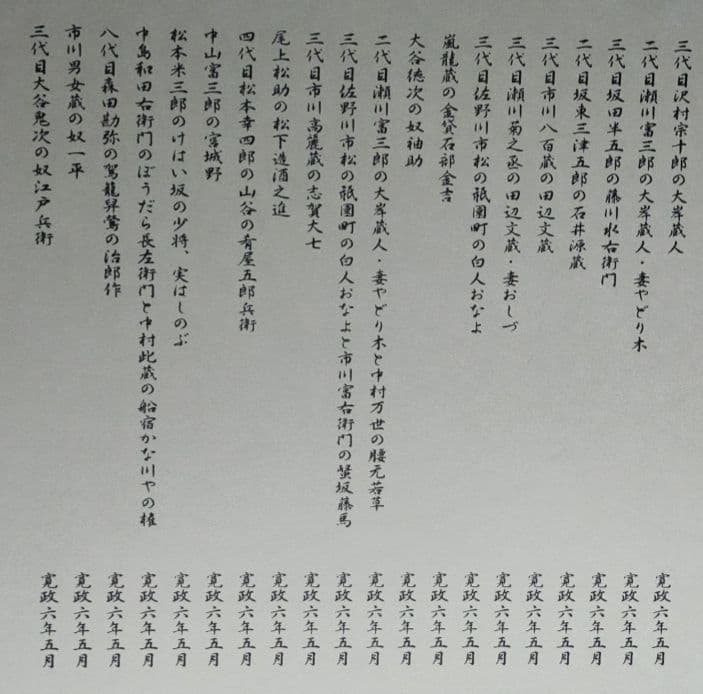 三代目沢村宗十郎の大岸蔵人 寛政六年五月
二代目瀬川富三郎の大岸蔵人・妻やどり木 寛政六年五月
三代目坂田半五郎の藤川水右衛門 寛政六年五月
二代目坂東三津五郎の石井源蔵 寛政六年五月
三代目市川八百蔵の田辺文蔵 寛政六年五月
三代目瀬川菊之丞の田辺文蔵・妻おしづ 寛政六年五月
三代目佐野川市松の祇園町の白人おなよ 寛政六年五月
嵐龍蔵の金貸石部金吉 寛政六年五月
大谷徳次の奴袖助 寛政六年五月
二代目瀬川富三郎の大岸蔵人・妻やどり木と中村万世の腰元若草 寛政六年五月
三代目佐野川市松の祇園町の白人おなよと市川富右衛門の蟹坂藤馬 寛政六年五月
三代目市川高麗蔵の志賀大七 寛政六年五月
尾上松助の松下造酒之進 寛政六年五月
四代目松本幸四郎の山谷の肴屋五郎兵衛 寛政六年五月
中山富三郎の宮城野 寛政六年五月
松本米三郎のけはい坂の少将、実はしのぶ 寛政六年五月
中島和田右衛門のぼうだら長左衛門と中村此蔵の船宿かな川やの権 寛政六年五月
八代目森田勘弥の駕籠舁鶯の治郎作 寛政六年五月
市川男女蔵の奴一平 寛政六年五月
三代目大谷鬼次の奴江戸兵衛 寛政六年五月